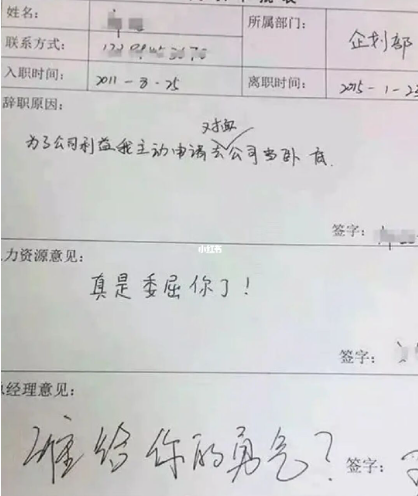 姓名：
所属部门： 企划部
联系方式：
入职时间： 2011-8-25 离职时间： 2015-1-23
辞职原因：
为了公司利益我主动申请去对面公司当卧底.
签字：
小红书
力资源意见：
真是委屈你了！
签字：
经理意见：
谁给你的勇气？ 签字：